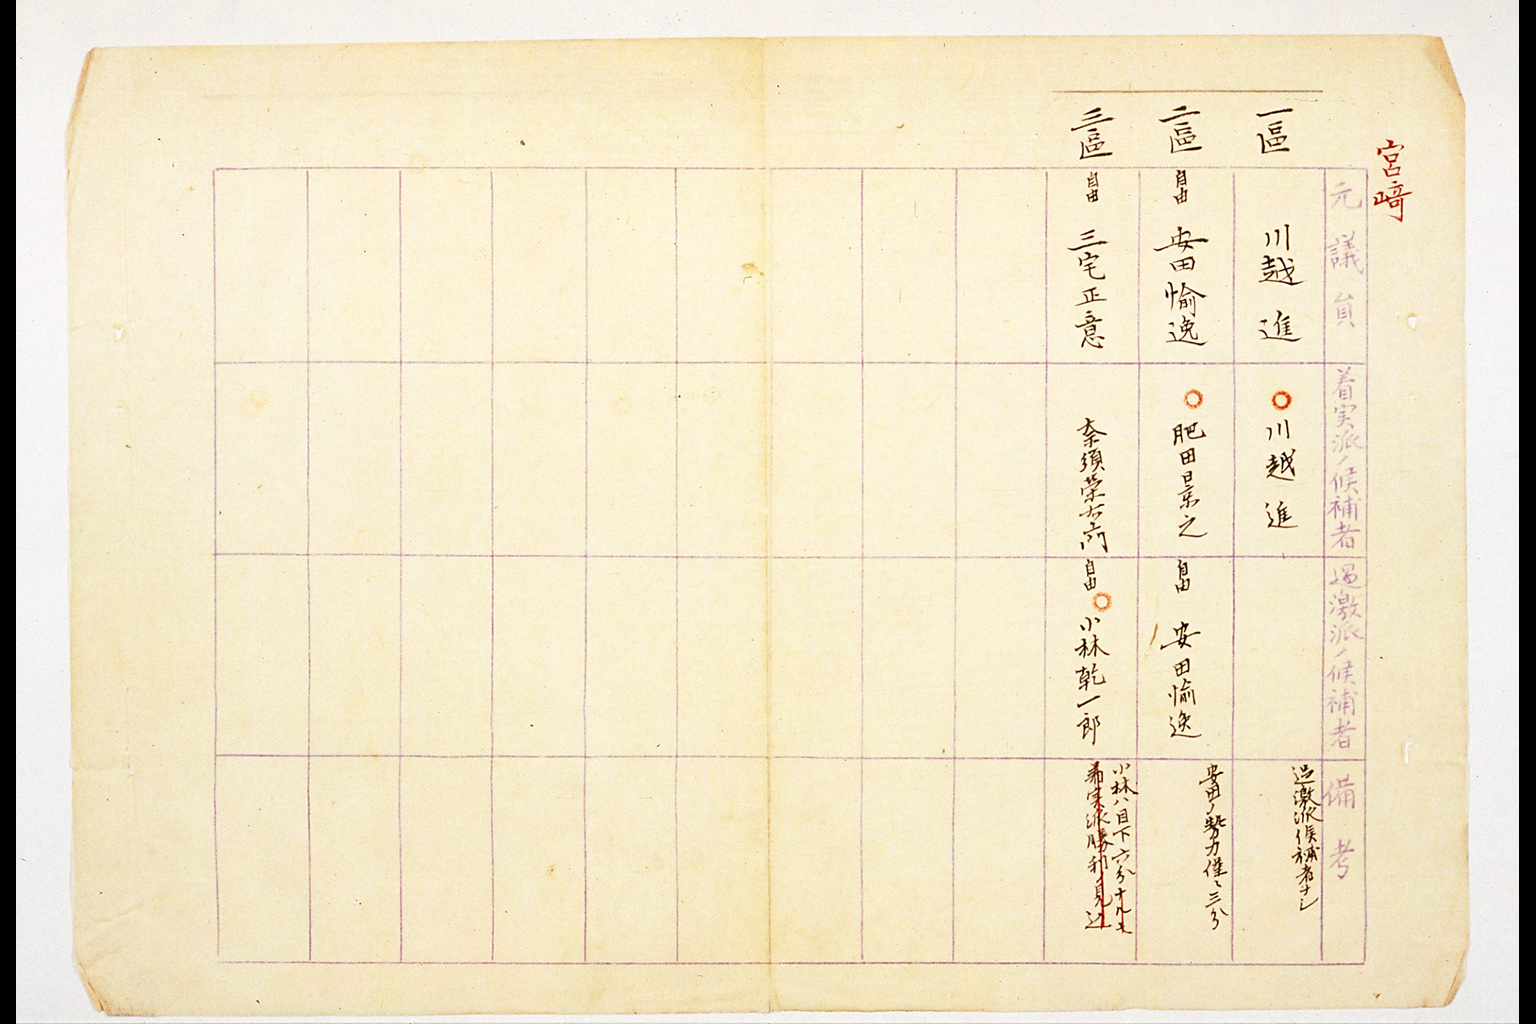 宮﨑
元議員
着実派ノ候補者
過激派ノ候補者
備考
一區
川越進
川越進
過激派候補者ナシ
二區
自由
安田愉逸
肥田景之
自由
安田愉逸
安田ノ勢力僅々三分
三區
自由
三宅正意
奈須榮右衛門
自由
小林乾一郎
小林ハ目下六分ナルモ
着実派勝利ノ見込